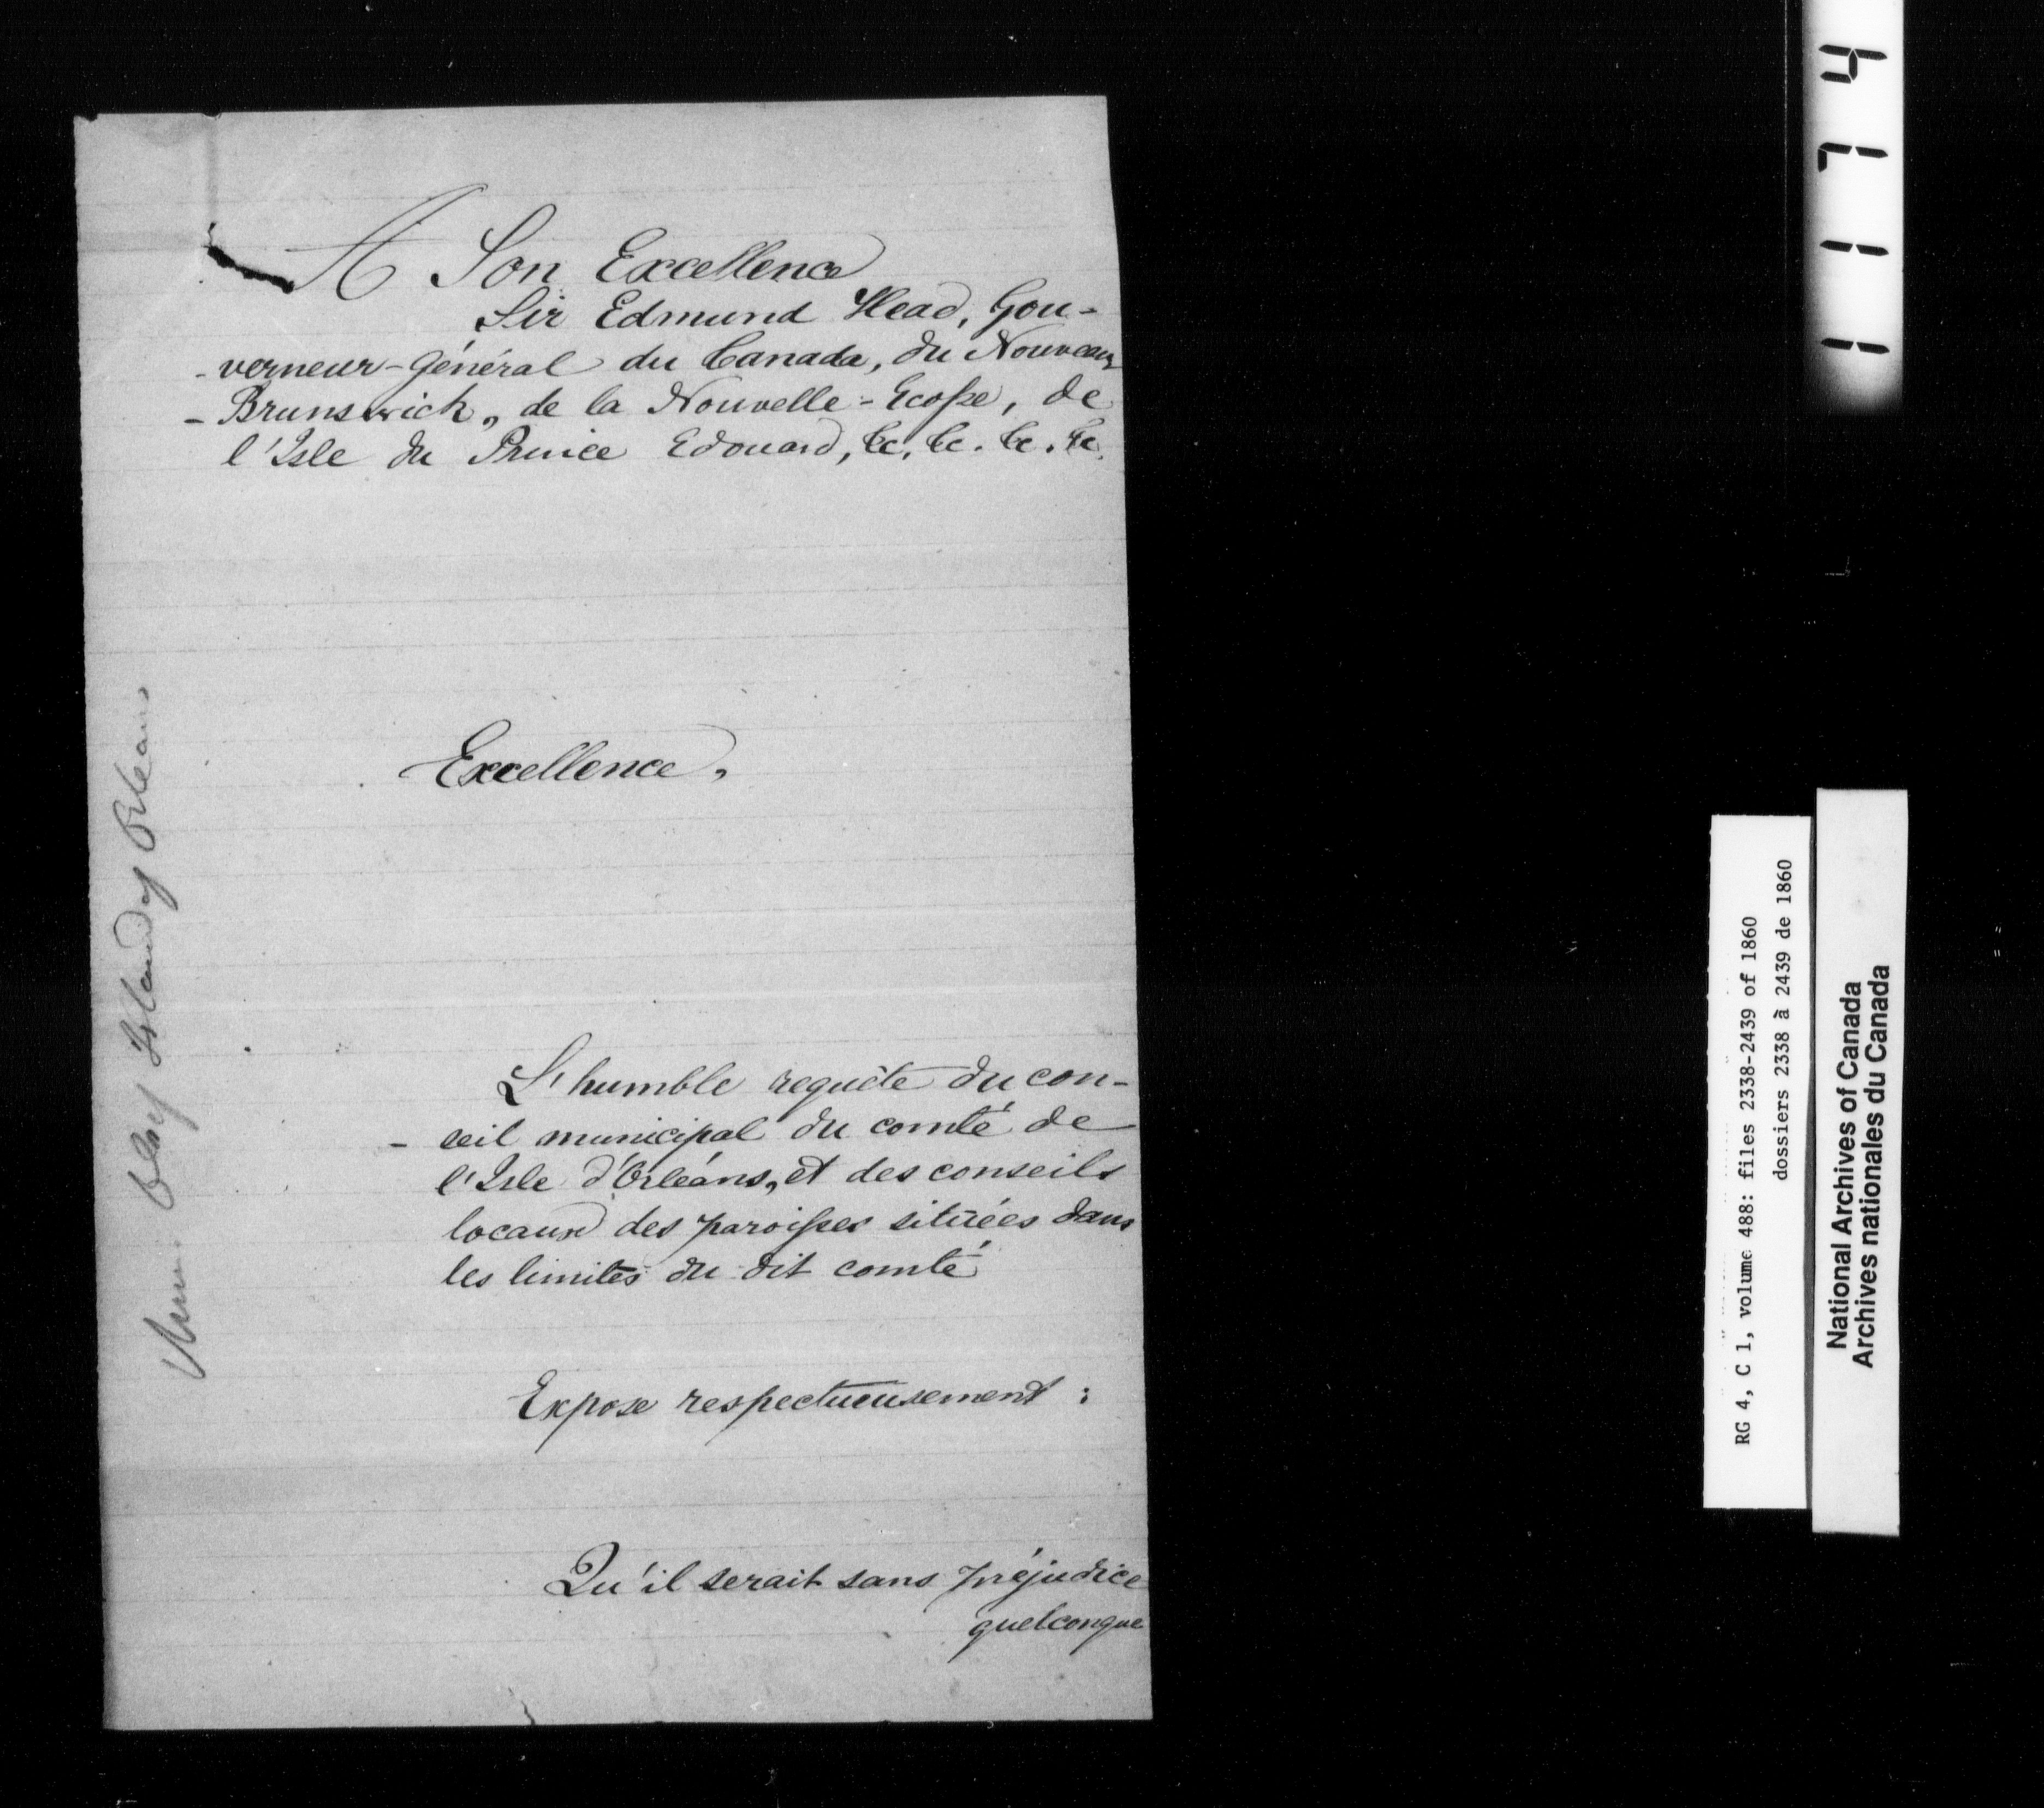 A Son Excellence
Sir Edmund Head, Gou-
-verneur-Général du Canada, du Nouveau
-Brunswick, de la Nouvelle-Ecosse, de
l'Isle du Prince Edouard, &c, &c. &c. &c.
Excellence,
L'humble requête du con-
-seil municipal du comté de
l'Isle d'Orléans, et des conseils
locaux des paroisses situées dans
les limites du dit comté
Expose respectueusement :
Qu'il serait sans préjudice
quelconque
Island of Orleans
1174
RG 4, C 1, volume 488: files 2338-2439 of 1860
dossiers 2338 à 2439 de 1860
National Archives of Canada
Archives nationales du Canada